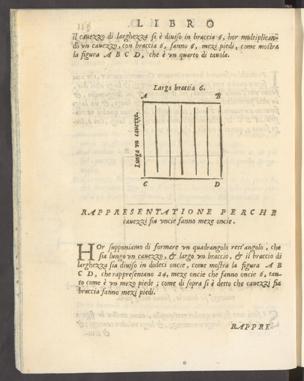 LIBRO
il cauezzo di larghezza si è diuiso in braccia 6, hor multiplicando
di vn cauezzo, con braccia 6, fanno 6, mezi piedi, come mostra
la figura A B C D, che è vn quarto di tauola.
Largo braccia 6.
A B
Lungo vn cauezzo.
C D
RAPPRESENTATIONE PERCHE
cauezzi fia vncie fanno meze oncie.
HOr supponiamo di formare vn quadrangolo rett'angolo, che
sia lungo vn cauezzo, & largo vn braccio, & il braccio di
larghezza sia diuiso in dodeci oncie, come mostra la figura A B
C D, che rappresentano 24, meze oncie che fanno oncie 6, tan-
to come è vn mezo piede, come di sopra si è detto che cauezzi fia
braccia fanno mezi piedi.
RAPPRE-